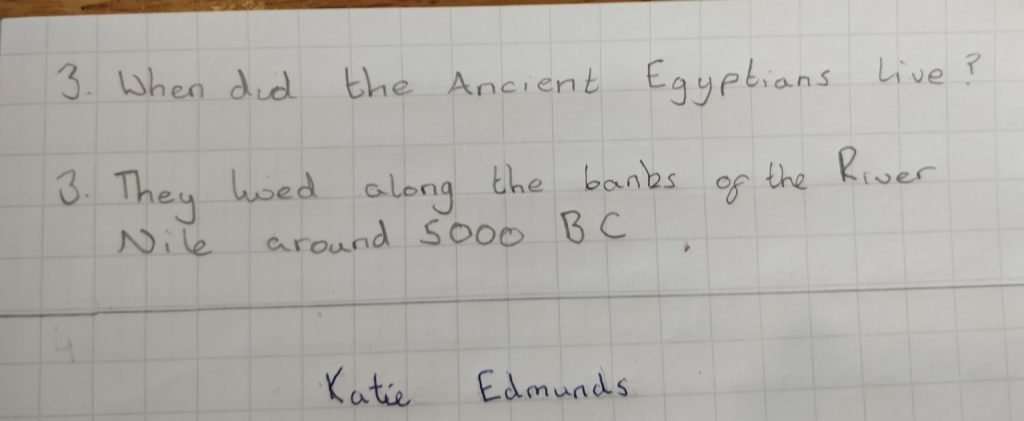 3. When did the Ancient Egyptians Live?
3. They lived along the banks of the River
Nile around 5000 BC.
4
Katie Edmunds